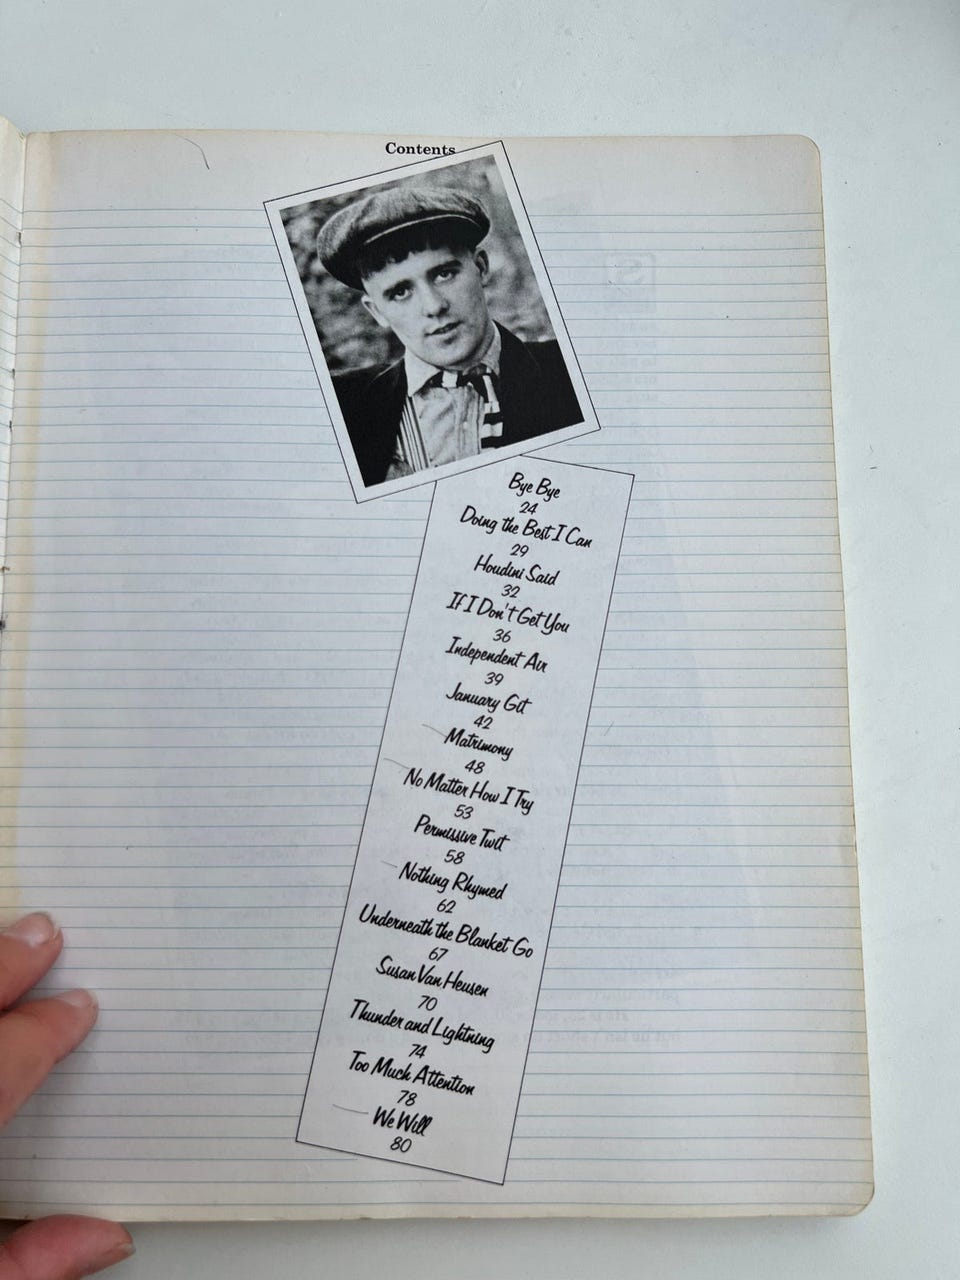 Contents
Bye Bye
24
Doing the Best I Can
29
Houdini Said
32
If I Don't Get You
36
Independent Air
39
January Git
42
Matrimony
48
No Matter How I Try
53
Permissive Twit
58
Nothing Rhymed
62
Underneath the Blanket Go
67
Susan Van Heusen
70
Thunder and Lightning
74
Too Much Attention
78
We Will
80